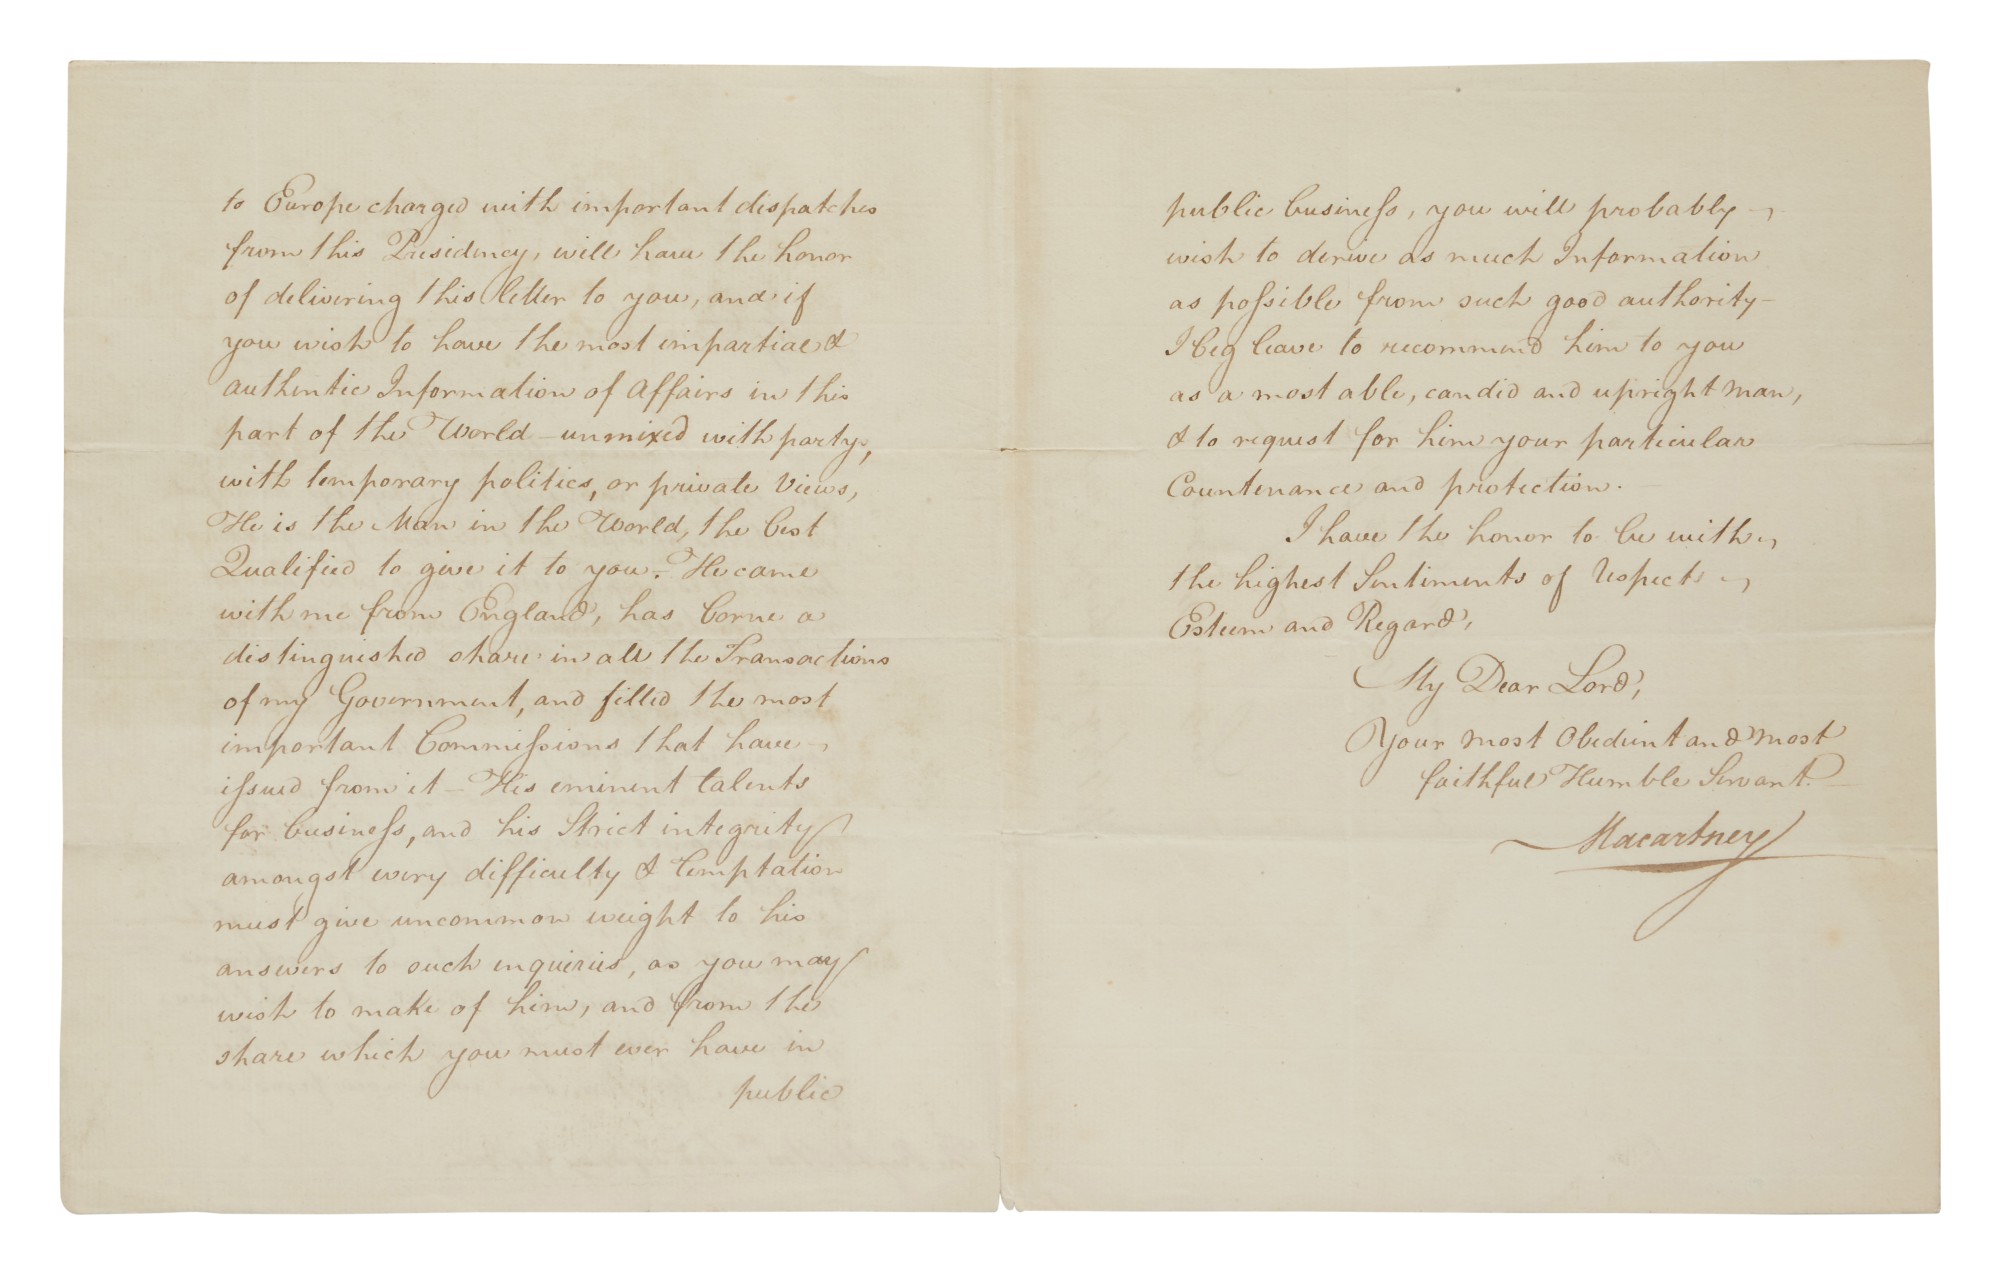 to Europe charged with important dispatches
from this Presidency, will have the honor
of delivering this letter to you, and if
you wish to have the most impartial &
authentic Information of Affairs in this
part of the World – unmixed with party,
with temporary politics, or private Views,
He is the Man in the World, the best
Qualified to give it to you. – He came
with me from England, has borne a
distinguished share in all the Transactions
of my Government, and filled the most
important Commissions that have
issued from it – His eminent talents
for business, and his Strict integrity
amongst every difficulty & temptation
must give uncommon weight to his
answers to such inquiries, as you may
wish to make of him, and from the
share which you must ever have in
public
public business, you will probably
wish to derive as much Information
as possible from such good authority –
I beg leave to recommend him to you
as a most able, candid and upright Man,
& to request for him your particular
Countenance and protection. –
I have the honor to be with
the highest Sentiments of respect
Esteem and Regard,
My Dear Lord,
Your most Obedient and most
faithful Humble Servant. –
Macartney